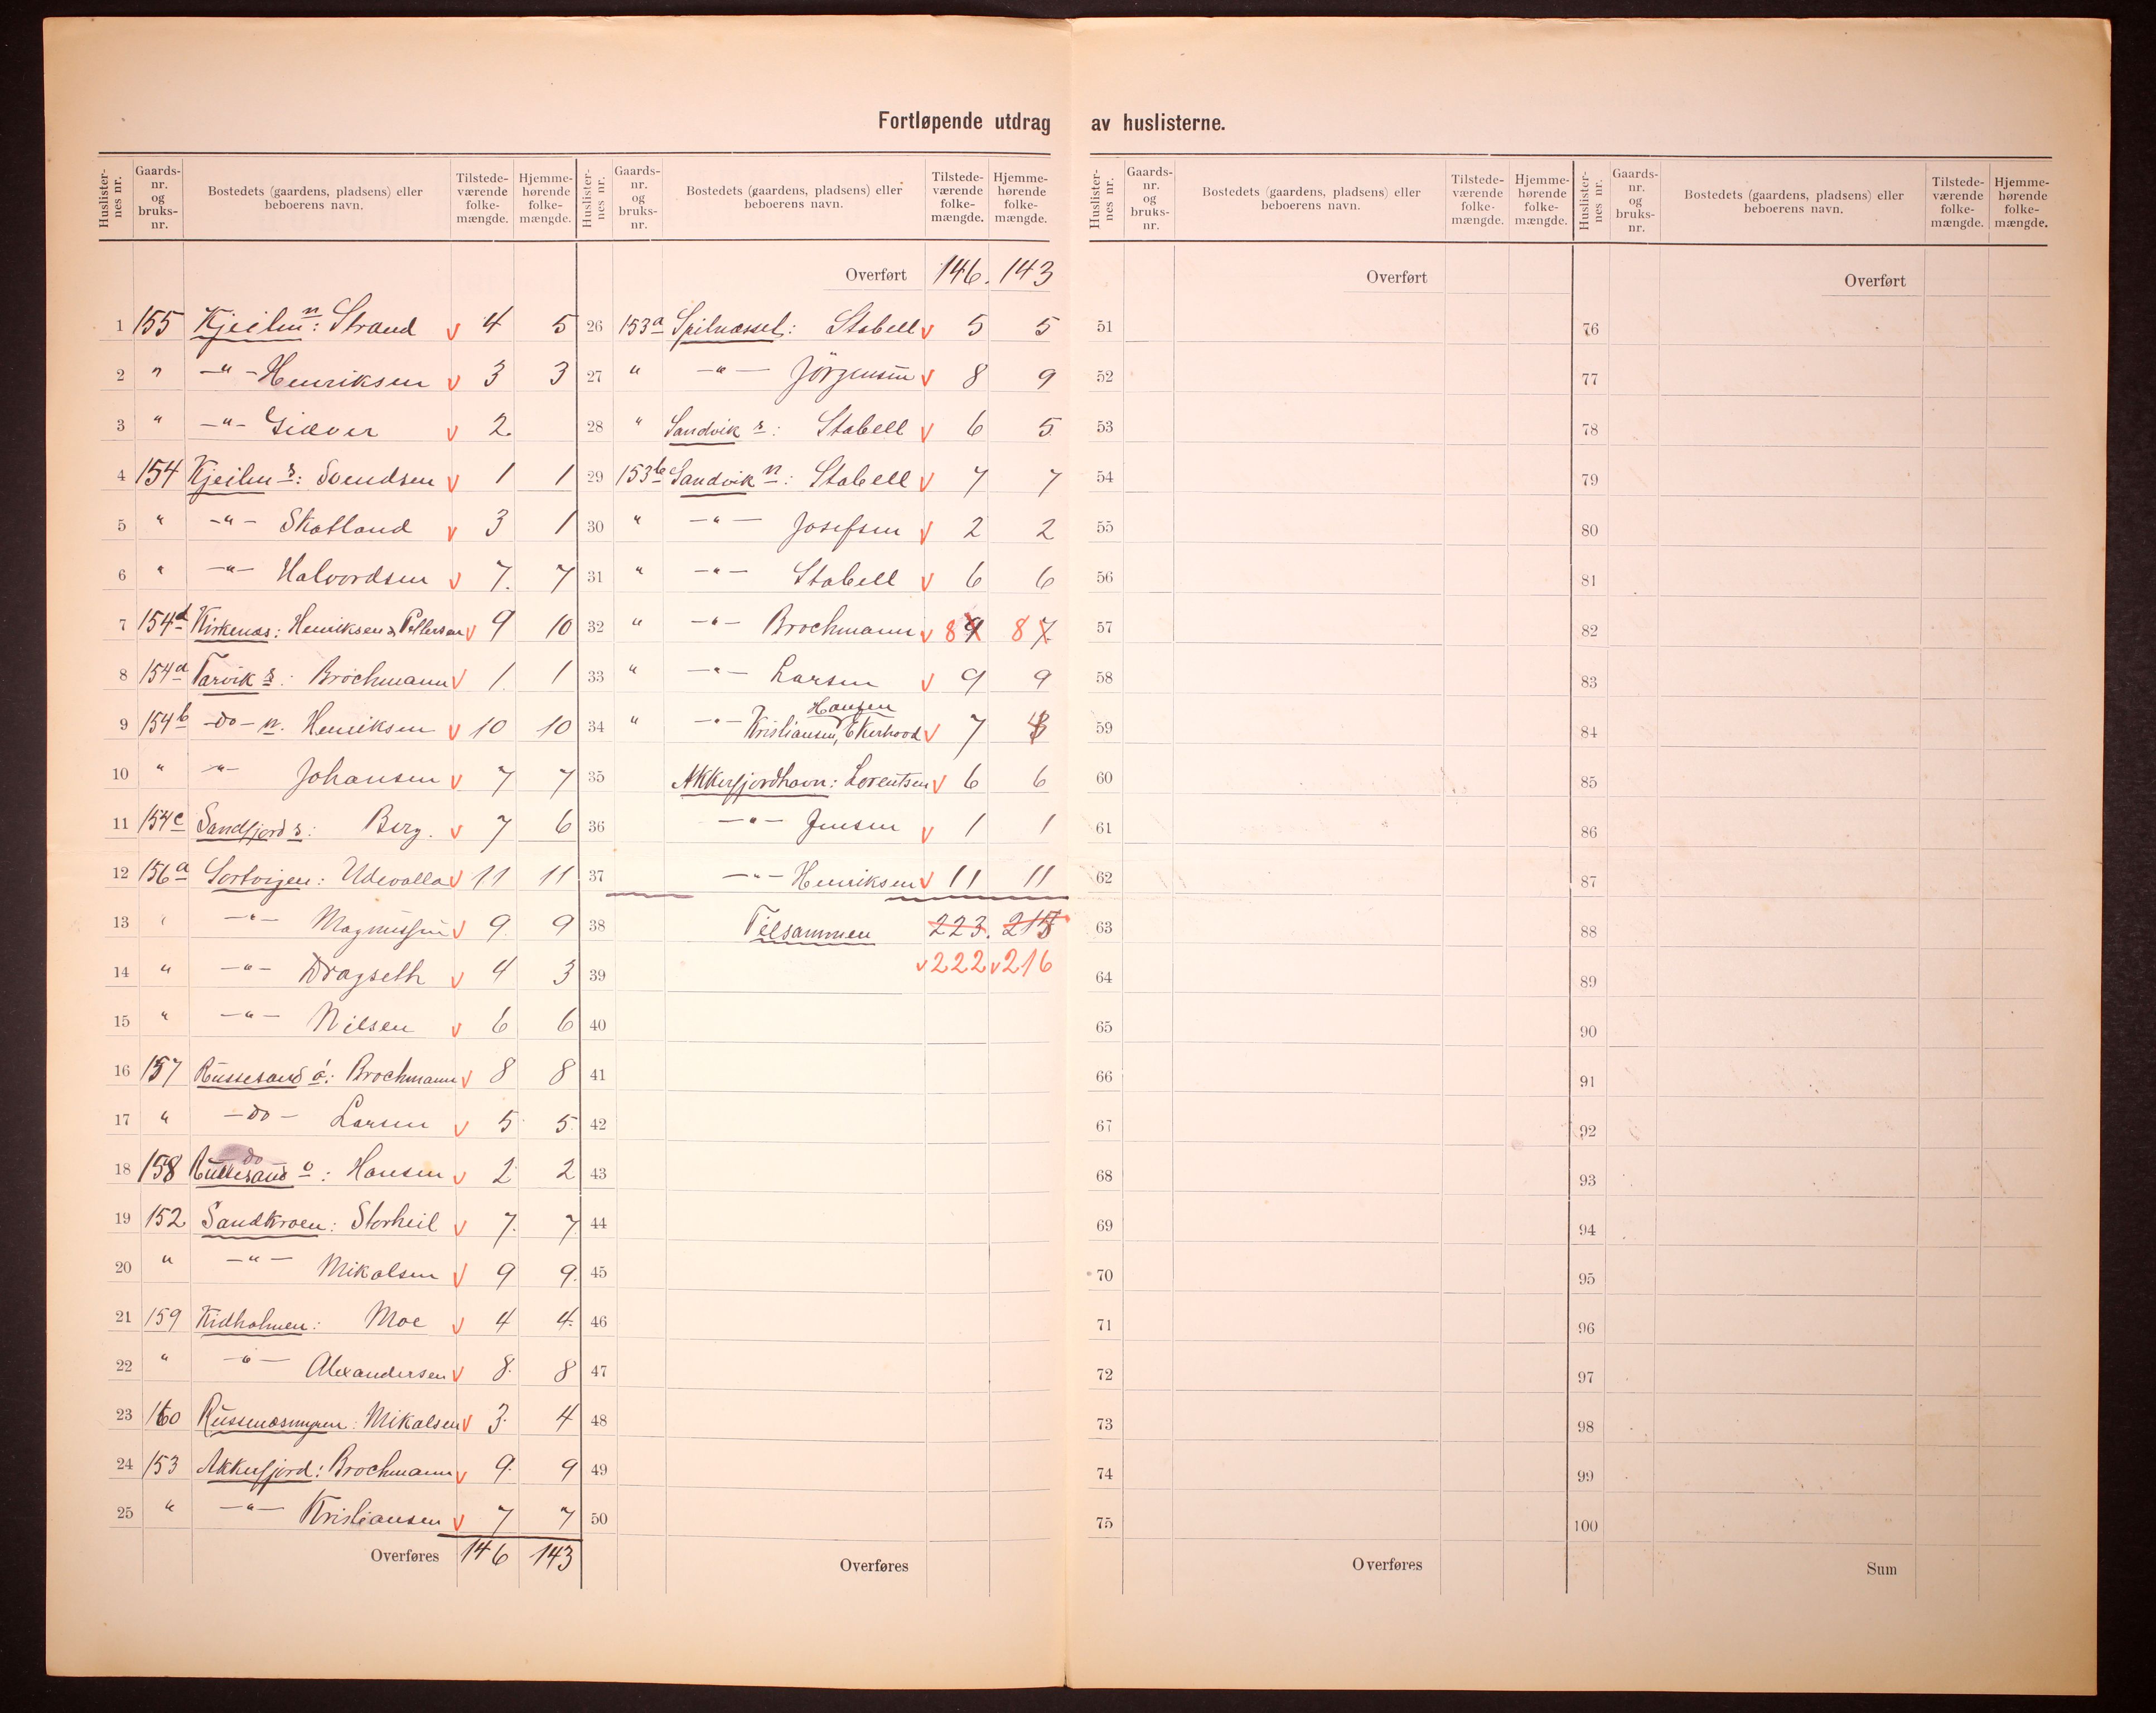 Fortløpende utdrag av huslisterne.
Huslister-nes nr. Gaards-nr. og bruks-nr. Bostedets (gaardens, pladsens) eller beboerens navn. Tilstede-værende folke-mængde. Hjemme-hørende folke-mængde.
1 155 Kjeilen n: Strand v 4 5
2 " -"- Henriksen v 3 3
3 " -"- Giæver v 2
4 154 Kjeilen s: Svendsen v 1 1
5 " -"- Skotland v 3 1
6 " -"- Halvordsen v 7. 7
7 154d Kirkenæs: Henriksen & Pettersen v 9 10
8 154a Tarvik s: Brochmann v 1. 1
9 154b -do- n. Henriksen v 10 10
10 " -"- Johansen v 7 7
11 154c Sandfjord s: Berg. v 7 6
12 156a Sortvigen: Udevalla v 11 11
13 " -"- Magnussen v 9. 9
14 " -"- Dragseth v 4 3
15 " -"- Nilsen v 6 6
16 157 Russesand ø: Brochmann v 8 8
17 " -do- Larsen v 5 5
18 158 do : Hansen v 2 2
19 152 Sandkroen: Storheil v 7. 7
20 " -"- Mikalsen v 9 9.
21 159 Kidholmen: Moe v 4 4.
22 " -"- Alexandersen v 8. 8
23 160 Russenæsmyren: Mikalsen v 3. 4
24 153 Akkerfjord: Brochmann v 9. 9
25 " -"- Kristiansen v 7 7
Overføres 146 143
Huslister-nes nr. Gaards-nr. og bruks-nr. Bostedets (gaardens, pladsens) eller beboerens navn. Tilstede-værende folke-mængde. Hjemme-hørende folke-mængde.
Overført 146. 143
26 153a Spilnæsset: Stabell v 5 5
27 " -"- Jörgensen v 8 9
28 " Sandvik s: Stabell v 6 5
29 153b Sandvik n: Stabell v 7 7
30 " -"- Josefsen v 2 2
31 " -"- Stabell v 6 6
32 " -"- Brochmann v 8 9 8 7
33 " -"- Larsen v 9 9
Hansen
34 " -"- Kristiansen, v 7
35 Akkerfjordhavn: Lorentsen v 6 6
36 -"- Jensen v 1 1
37 -"- Henriksen v 11 11
38 Tilsammen 223. 215
39 v 222 v 216
40
41
42
43
44
45
46
47
48
49
50
Overføres
Huslister-nes nr. Gaards-nr. og bruks-nr. Bostedets (gaardens, pladsens) eller beboerens navn. Tilstede-værende folke-mængde. Hjemme-hørende folke-mængde.
Overført
51
52
53
54
55
56
57
58
59
60
61
62
63
64
65
66
67
68
69
70
71
72
73
74
75
Overføres
Huslister-nes nr. Gaards-nr. og bruks-nr. Bostedets (gaardens, pladsens) eller beboerens navn. Tilstede-værende folke-mængde. Hjemme-hørende folke-mængde.
Overført
76
77
78
79
80
81
82
83
84
85
86
87
88
89
90
91
92
93
94
95
96
97
98
99
100
Sum